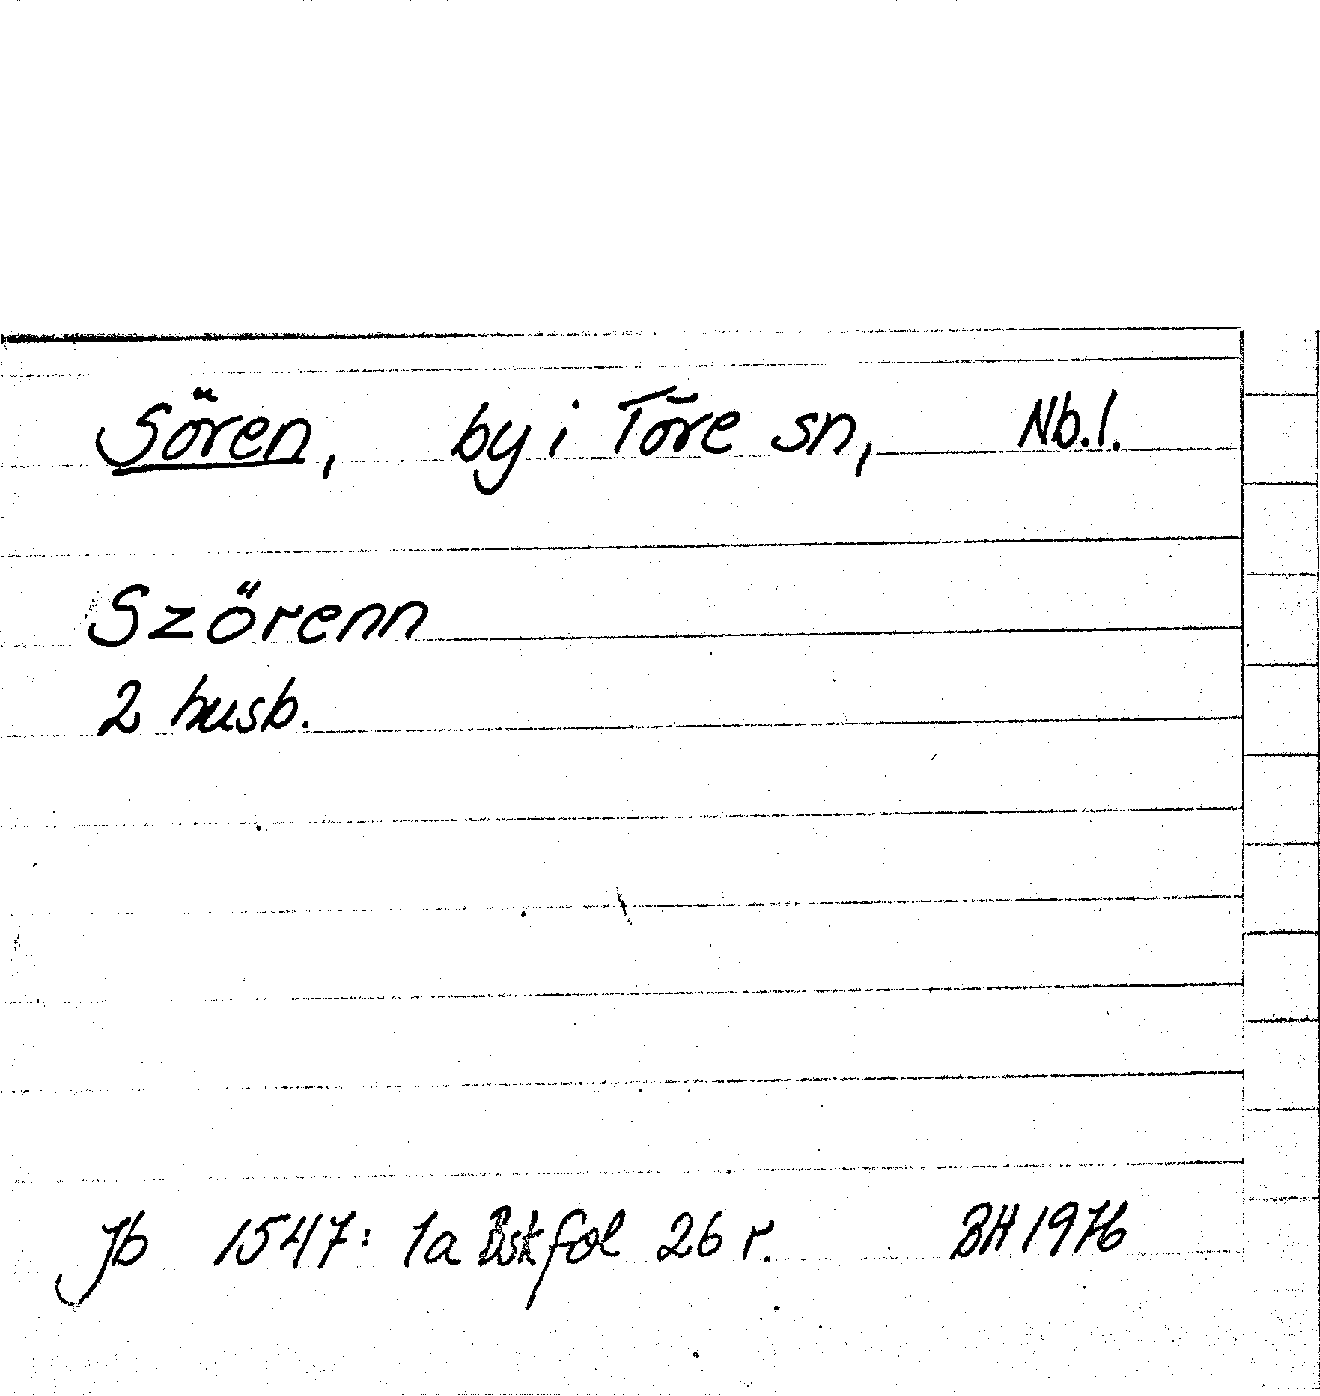 Sören, by i Töre sn, Nb.l.
Szörenn
2 husb.
Jb 1547: 1a Bsk fol 26 r. BH 1976